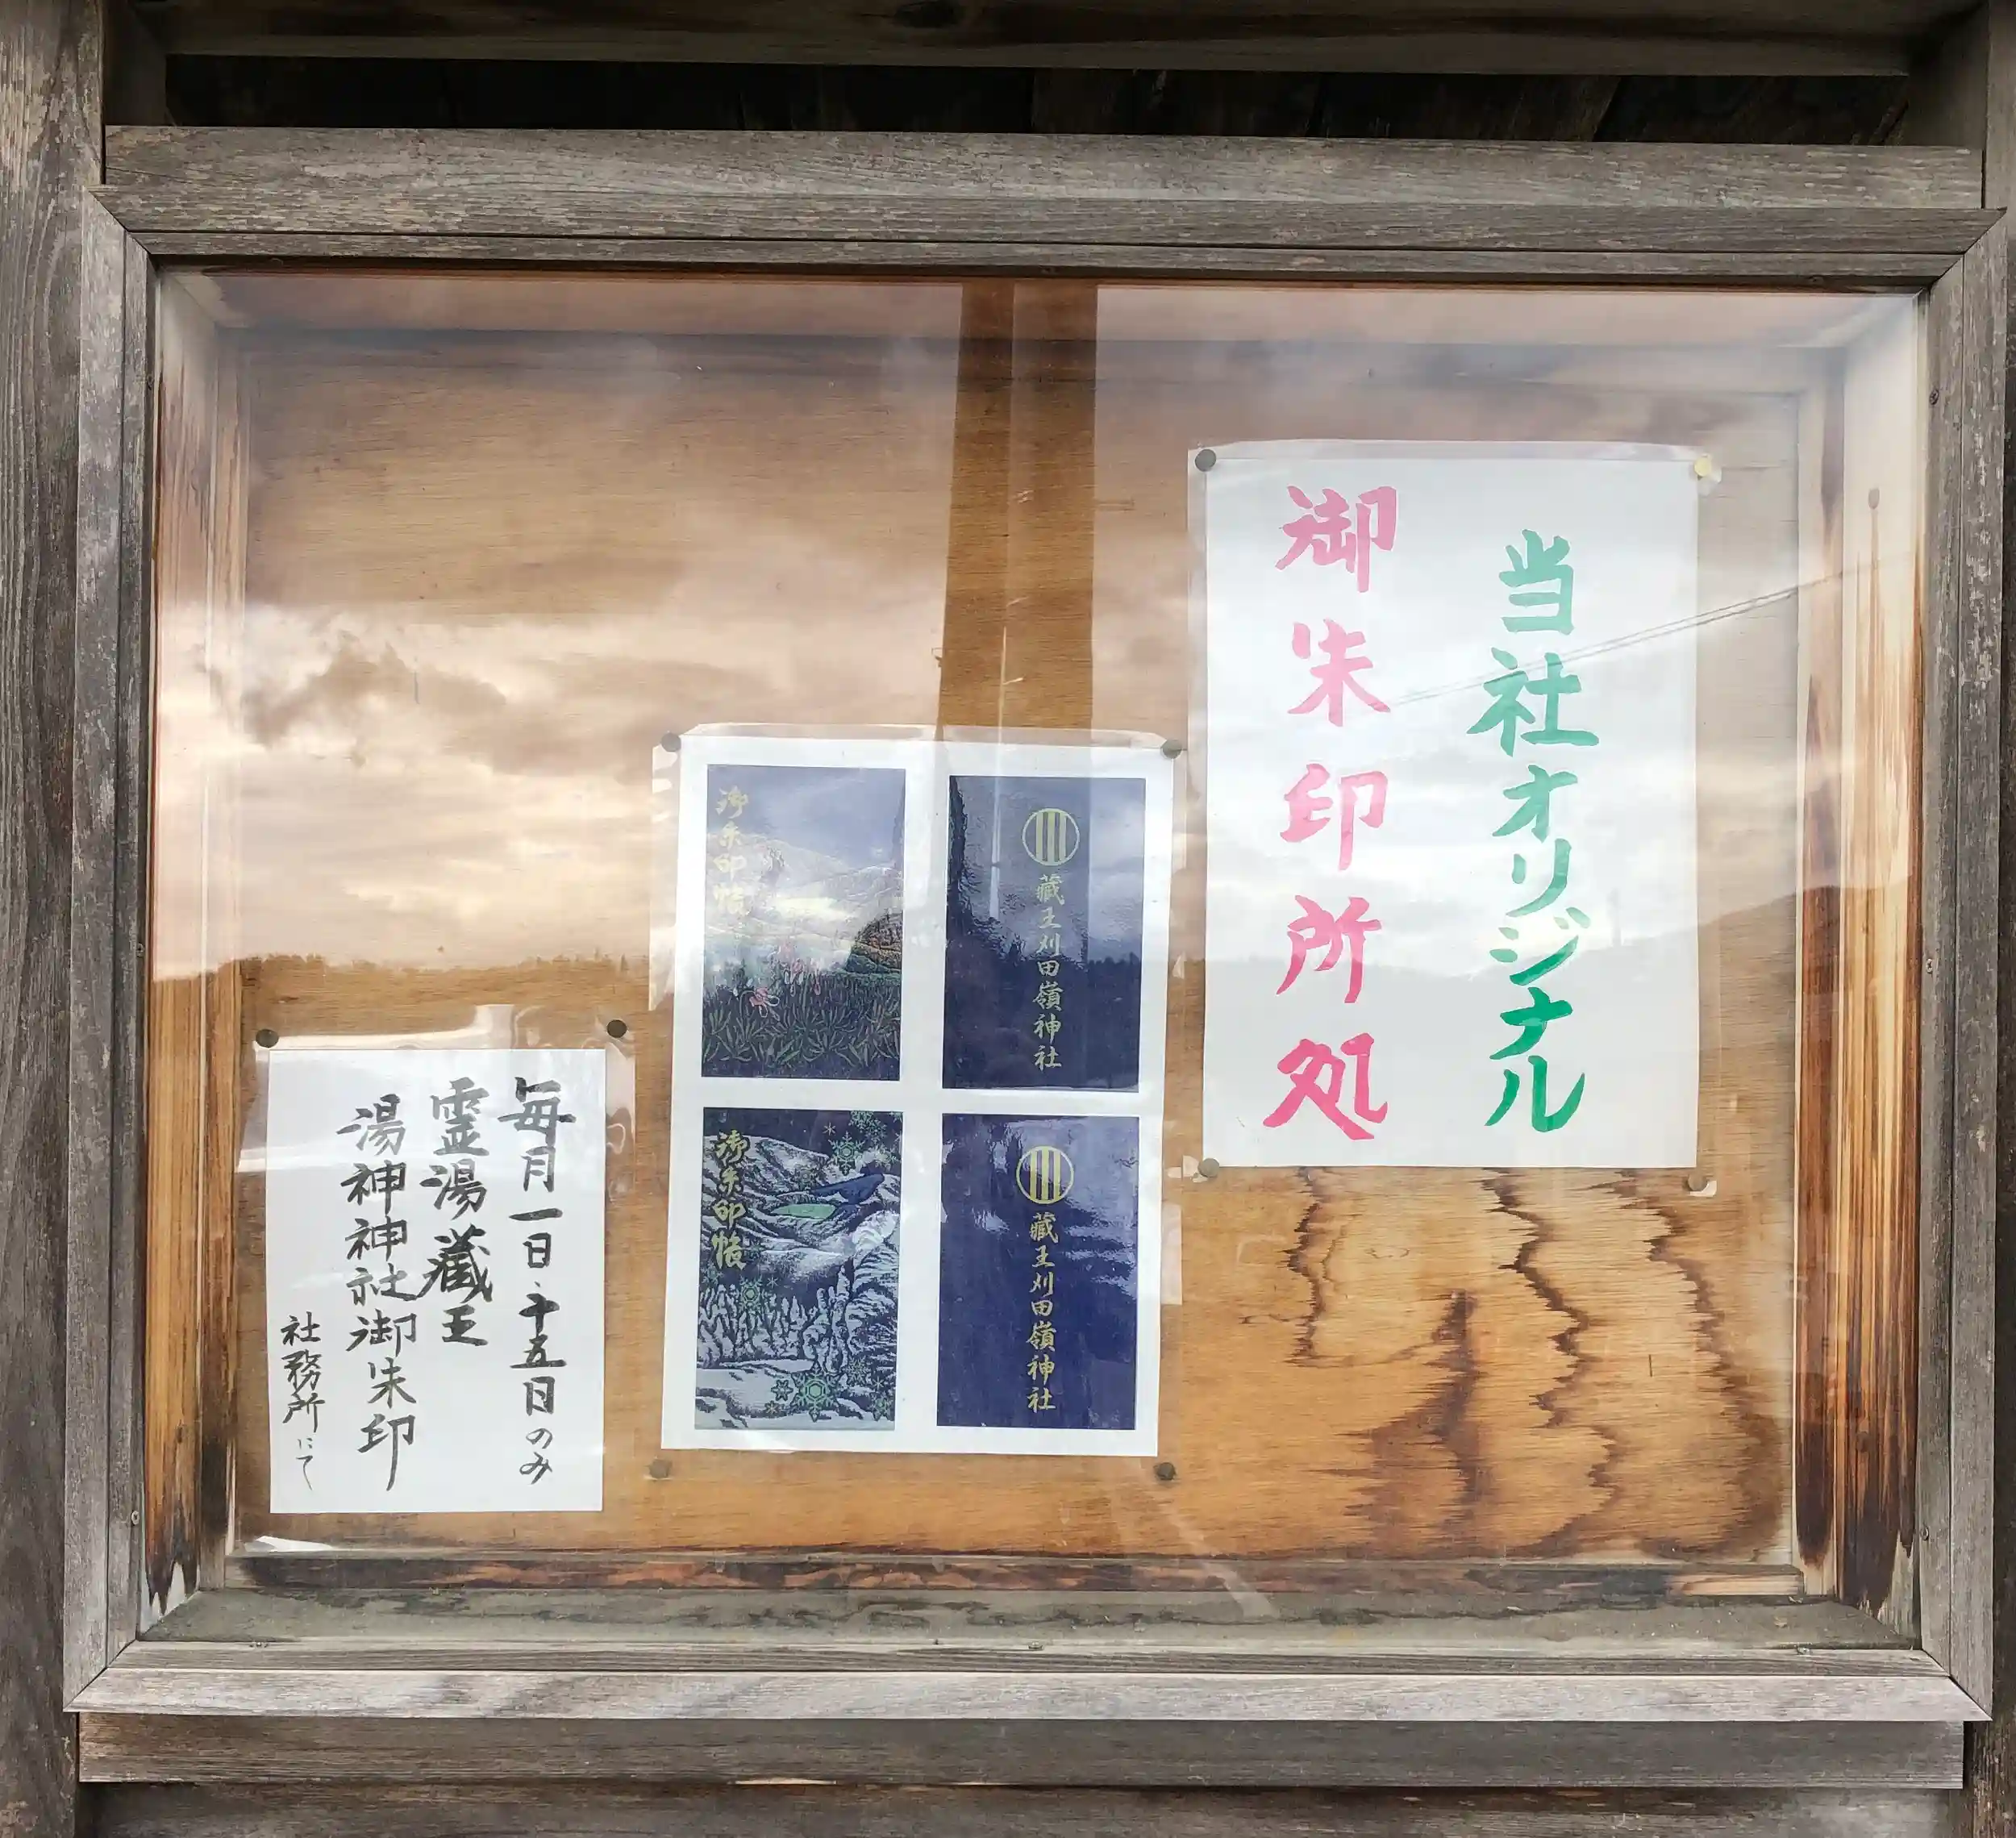 当社オリジナル
御朱印所処
御朱印帳
蔵王刈田嶺神社
御朱印帳
蔵王刈田嶺神社
毎月一日・十五日のみ
霊湯蔵王
湯神神社御朱印
社務所にて